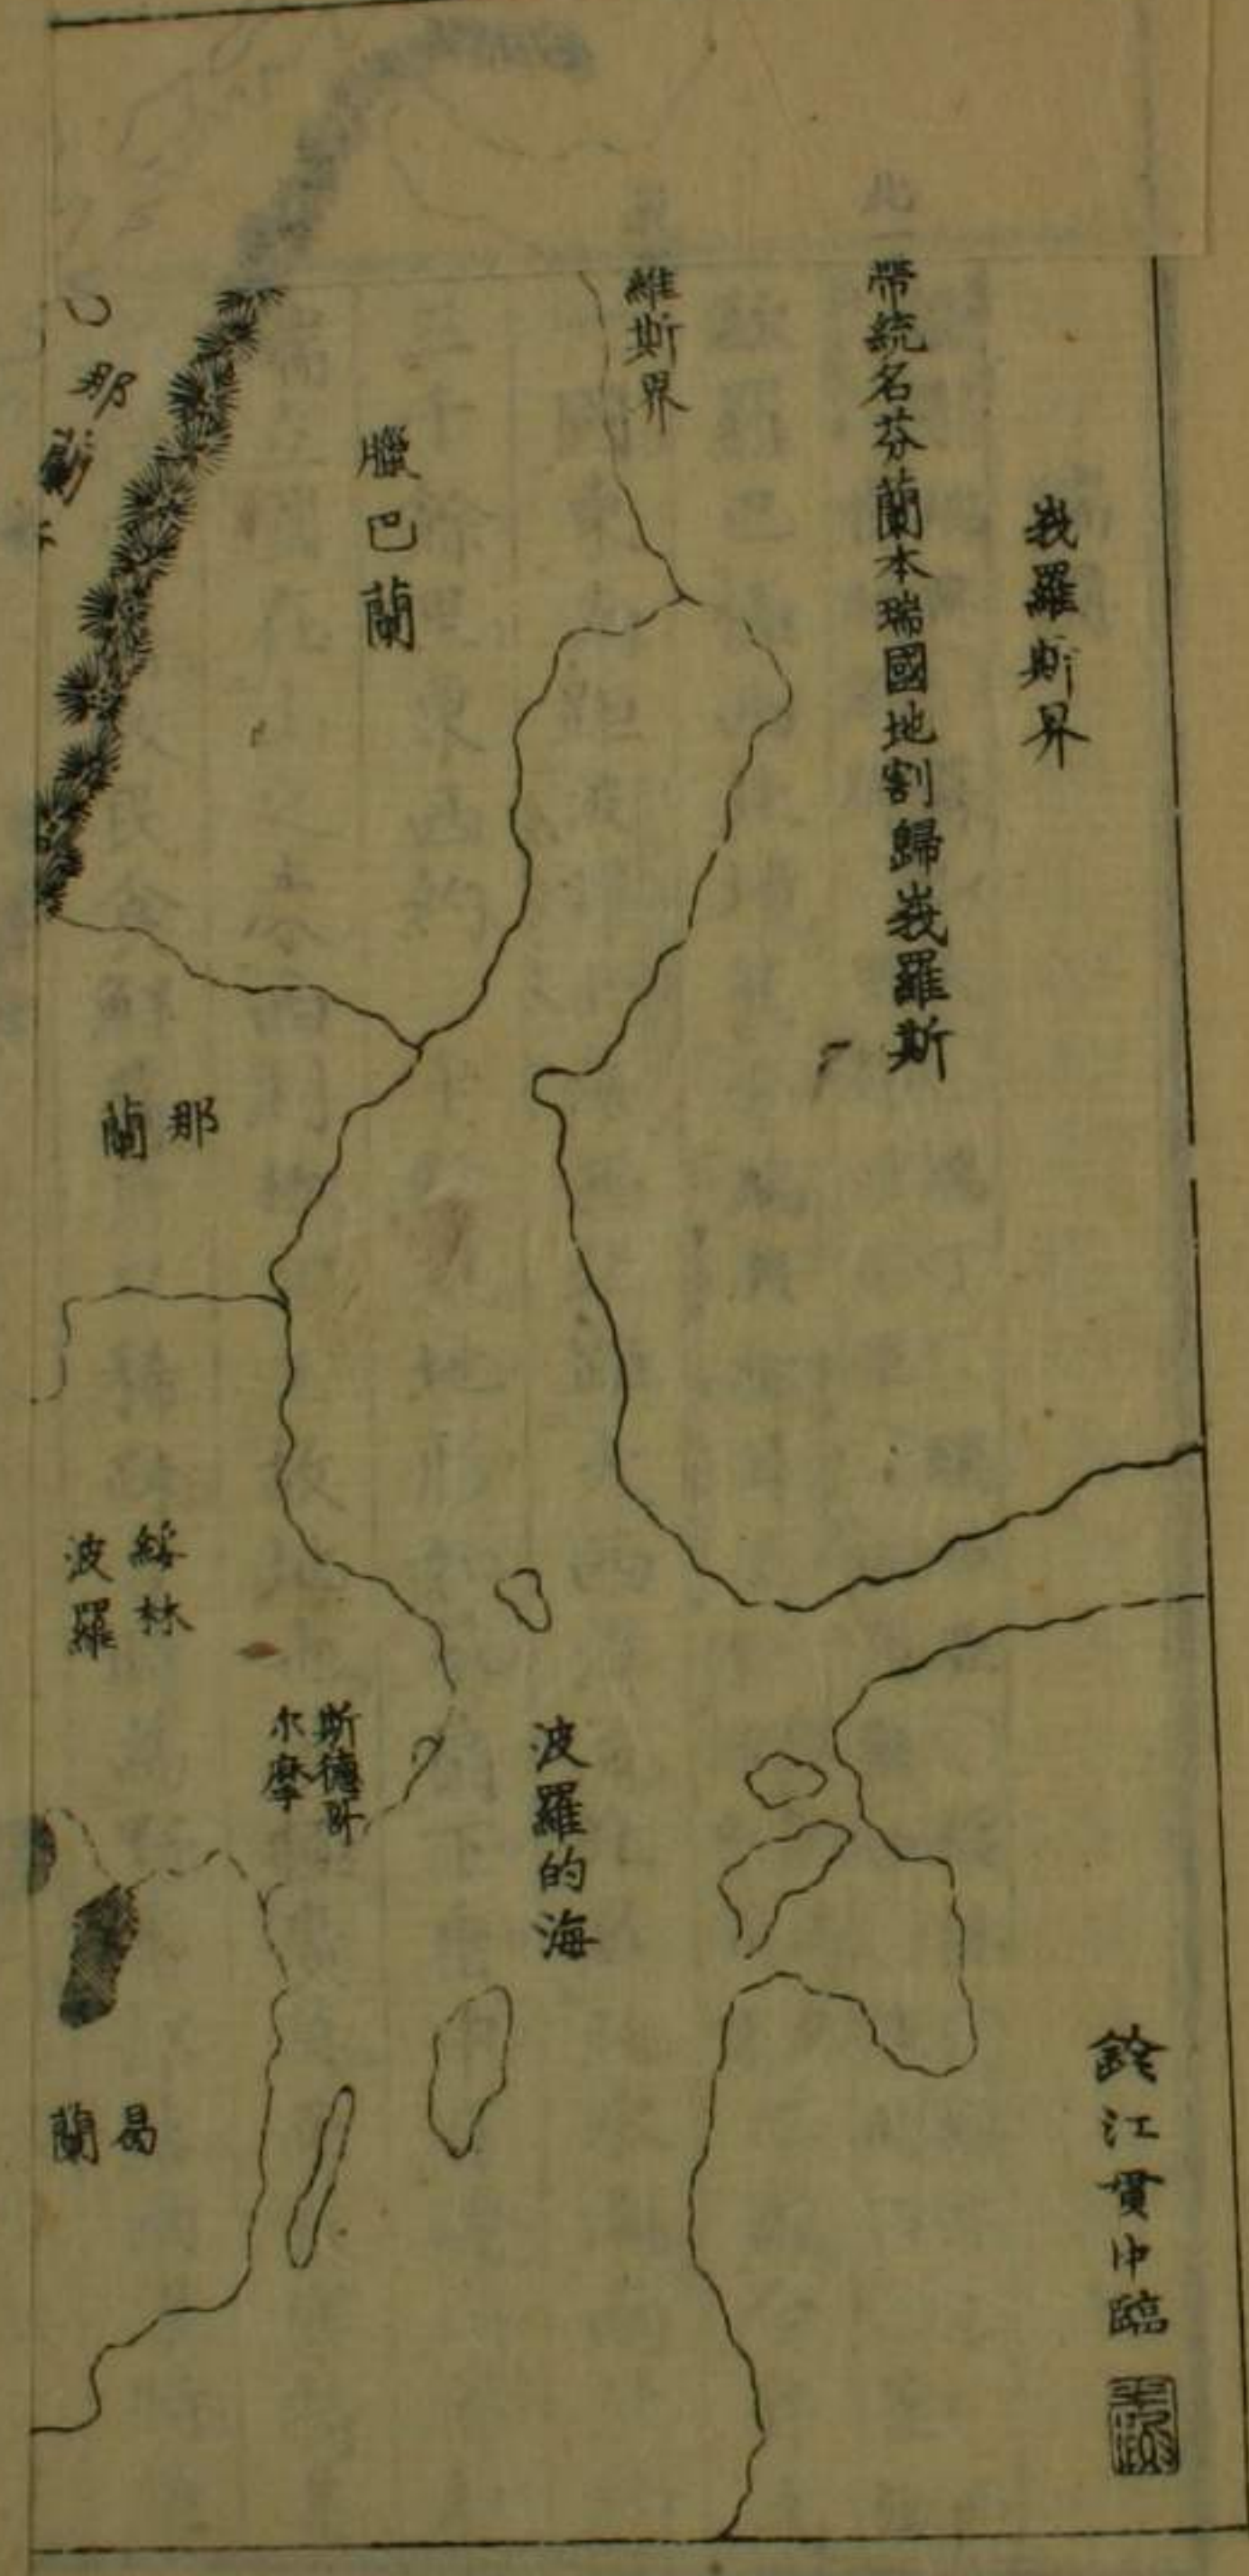 峩羅斯界
此一帶統名芬蘭本瑞國地割歸峩羅斯
維斯界
臘巴蘭
那
那蘭
綏林
波羅
斯德哥
尔摩
波羅的海
曷蘭
江貫中臨